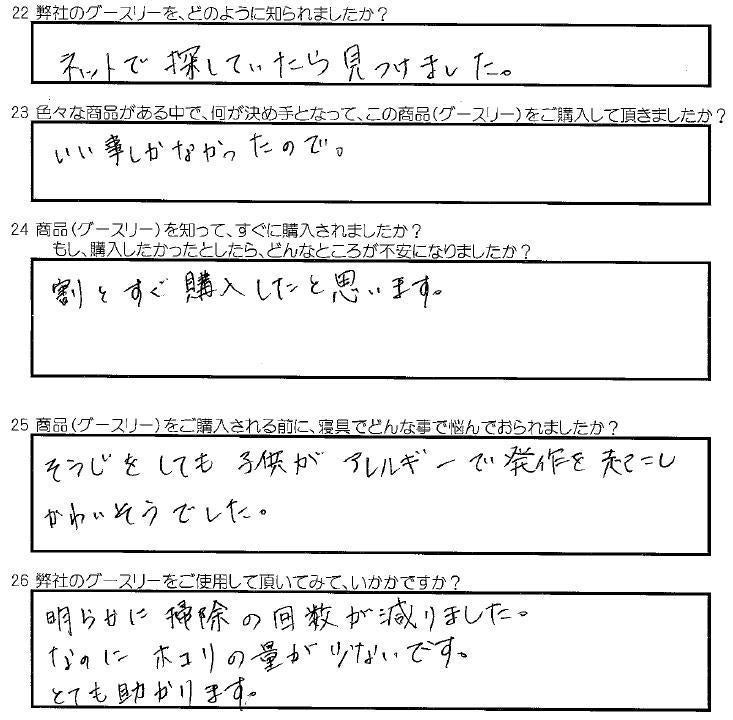 22 弊社のグースリーを、どのように知られましたか？
ネットで探していたら見つけました。
23 色々な商品がある中で、何が決め手となって、この商品(グースリー)をご購入して頂きましたか？
いい事しかなかったので。
24 商品(グースリー)を知って、すぐに購入されましたか？
もし、購入したかったとしたら、どんなところが不安になりましたか？
割とすぐ購入したと思います。
25 商品(グースリー)をご購入される前に、寝具でどんな事で悩んでおられましたか？
そうじをしても子供がアレルギーで発作を起こし
かわいそうでした。
26 弊社のグースリーをご使用して頂いてみて、いかがですか？
明らかに掃除の回数が減りました。
なのにホコリの量が少ないです。
とても助かります。